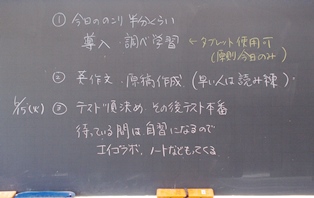 ① 今日ののこり半分くらい
導入・調べ学習 ← タブレット使用可
(原則今日のみ)
② 英作文・原稿作成 (早い人は読み練)
1/15(火) ③ テスト順決め、その後テスト本番
待っている間は自習になるので
エイゴラボ、ノートなどもってくる